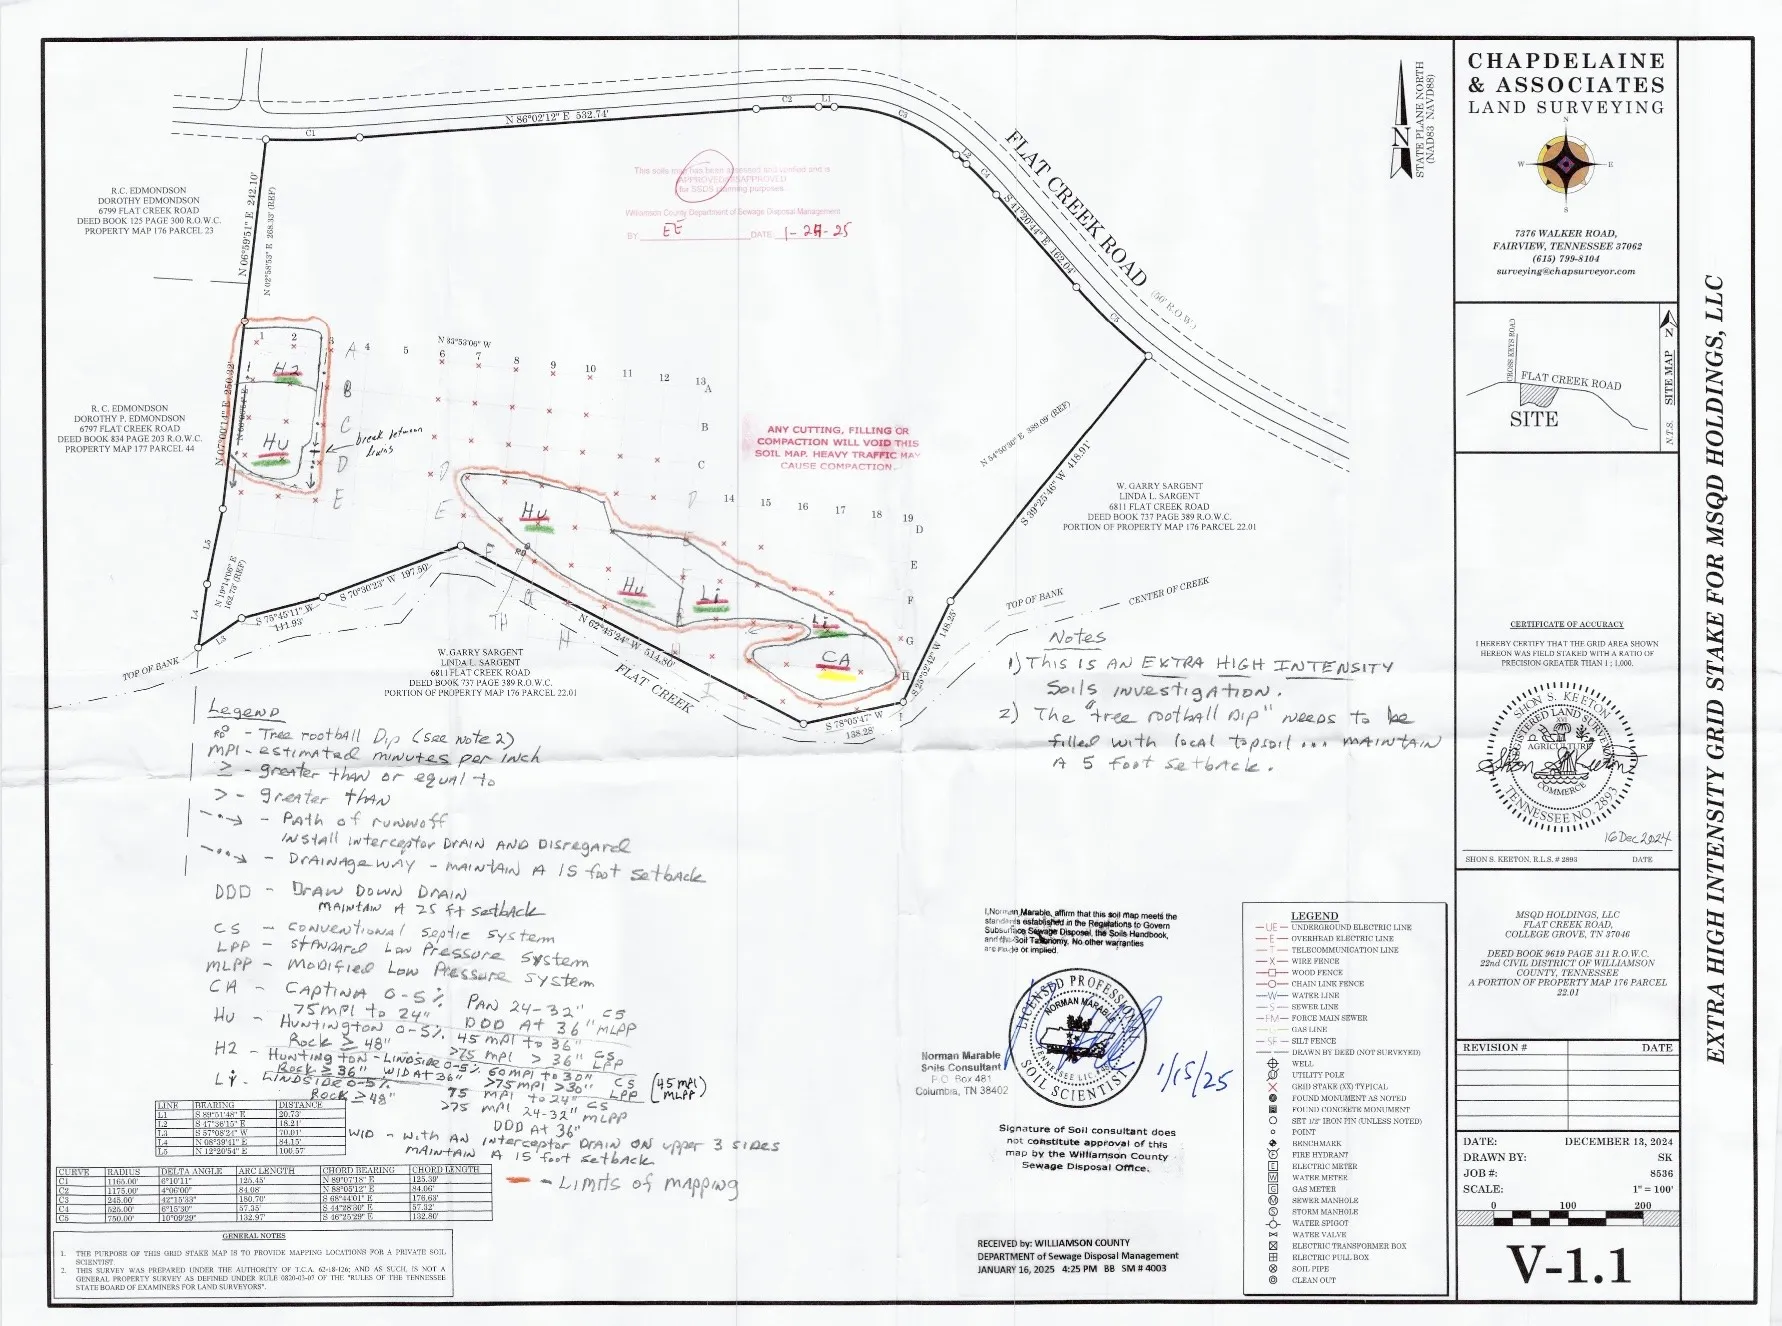 CHAPDELAINE
& ASSOCIATES
LAND SURVEYING
N
W
E
S
7376 WALKER ROAD,
FAIRVIEW, TENNESSEE 37062
(615) 799-8104
surveying@chapsurveyor.com
CROSS KEYS ROAD
FLAT CREEK ROAD
SITE
SITE MAP
N.T.S.
N
CERTIFICATE OF ACCURACY
I HEREBY CERTIFY THAT THE GRID AREA SHOWN
HEREON WAS FIELD STAKED WITH A RATIO OF
PRECISION GREATER THAN 1 : 1,000.
SHON S. KEETON
REGISTERED LAND SURVEYOR
AGRICULTURE
COMMERCE
TENNESSEE NO. 2893
16 Dec 2024
SHON S. KEETON, R.L.S. # 2893 DATE
MSQD HOLDINGS, LLC
FLAT CREEK ROAD,
COLLEGE GROVE, TN 37046
DEED BOOK 9619 PAGE 311 R.O.W.C.
22nd CIVIL DISTRICT OF WILLIAMSON
COUNTY, TENNESSEE
A PORTION OF PROPERTY MAP 176 PARCEL
22.01
REVISION # DATE
DATE: DECEMBER 13, 2024
DRAWN BY: SK
JOB #: 8536
SCALE: 1" = 100'
0 100 200
V-1.1
EXTRA HIGH INTENSITY GRID STAKE FOR MSQD HOLDINGS, LLC
STATE PLANE NORTH
(NAD83 NAVD88)
N
C1
N 86°02'12" E 532.74'
C2
L1
C3
L2
C4
S 41°20'44" E 162.04'
C5
FLAT CREEK ROAD
(50' R.O.W.)
R.C. EDMONDSON
DOROTHY EDMONDSON
6799 FLAT CREEK ROAD
DEED BOOK 125 PAGE 300 R.O.W.C.
PROPERTY MAP 176 PARCEL 23
N 06°59'51" E 242.10'
N 02°58'53" E 268.33' (REF)
This soils map has been assessed and verified and is
APPROVED/DISAPPROVED
for SSDS planning purposes.
Williamson County Department of Sewage Disposal Management
BY EE DATE 1-24-25
R. C. EDMONDSON
DOROTHY P. EDMONDSON
6797 FLAT CREEK ROAD
DEED BOOK 834 PAGE 203 R.O.W.C.
PROPERTY MAP 177 PARCEL 44
N 07°00'14" E 250.32'
1 2 3 A 4 5 6 7 8 9 10 11 12 13
N 83°53'06" W
A
B
C
H2
B
C
D
E
Hu
break between
drains
ANY CUTTING, FILLING OR
COMPACTION WILL VOID THIS
SOIL MAP. HEAVY TRAFFIC MAY
CAUSE COMPACTION.
D
E
D
14 15 16 17 18 19
D
E
F
G
H
I
Hu
RD
F
Hu
Li
Li
CA
TH
H
I
N 54°50'30" E 389.09' (REF)
S 39°25'46" W 418.91'
W. GARRY SARGENT
LINDA L. SARGENT
6811 FLAT CREEK ROAD
DEED BOOK 737 PAGE 389 R.O.W.C.
PORTION OF PROPERTY MAP 176 PARCEL 22.01
L5
L4
L3
N 19°14'06" E
162.73' (REF)
S 75°45'11" W
141.93'
S 70°30'23" W 197.50'
N 62°45'24" W 514.80'
FLAT CREEK
S 78°05'47" W
138.28'
S 25°52'42" W 148.25'
TOP OF BANK
CENTER OF CREEK
TOP OF BANK
W. GARRY SARGENT
LINDA L. SARGENT
6811 FLAT CREEK ROAD
DEED BOOK 737 PAGE 389 R.O.W.C.
PORTION OF PROPERTY MAP 176 PARCEL 22.01
Notes
1) This IS AN EXTRA HIGH INTENSITY
Soils investigation.
2) The "tree rootball Dip" needs to be
filled with local topsoil ... MAINTAIN
A 5 foot setback.
Legend
RD - Tree rootball Dip (see note 2)
MPI - estimated minutes per inch
≥ - greater than or equal to
> - greater than
- Path of runwoff
INSTALL Interceptor DRAIN AND Disregard
- DRAINAGEWAY - MAINTAIN A 15 foot setback
DDD - DRAW DOWN DRAIN
MAINTAIN A 25 ft setback
CS - CONVENTIONAL Septic System
LPP - STANDARD Low Pressure System
MLPP - Modified Low Pressure System
CA - CAPTINA 0-5% PAN 24-32" CS
75 MPI to 24" DDD At 36" MLPP
Hu - HUNTINGTON 0-5% 45 MPI to 36" CS
Rock ≥ 48" >75 MPI > 36" LPP
H2 - Huntington - LINDSIDE 0-5% 60 MPI to 30" CS
Rock ≥ 36" WID AT 36" >75 MPI >30" LPP (45 MPI MLPP)
Li - LINDSIDE 0-5% 75 MPI to 24" CS
Rock ≥ 48" >75 MPI 24-32" MLPP
DDD At 36"
WID - with AN Interceptor DRAIN ON upper 3 sides
MAINTAIN A 15 foot setback
- Limits of mapping
LINE BEARING DISTANCE
L1 S 89°51'48" E 20.73'
L2 S 47°36'15" E 18.21'
L3 S 57°08'24" W 70.01'
L4 N 08°39'41" E 84.15'
L5 N 12°20'54" E 100.57'
CURVE RADIUS DELTA ANGLE ARC LENGTH CHORD BEARING CHORD LENGTH
C1 1165.00' 6°10'11" 125.45' N 89°07'18" E 125.39'
C2 1175.00' 4°06'00" 84.08' N 88°05'12" E 84.06'
C3 245.00' 42°15'33" 180.70' S 68°44'01" E 176.63'
C4 525.00' 6°15'30" 57.35' S 44°28'30" E 57.32'
C5 750.00' 10°09'29" 132.97' S 46°25'29" E 132.80'
GENERAL NOTES
1. THE PURPOSE OF THIS GRID STAKE MAP IS TO PROVIDE MAPPING LOCATIONS FOR A PRIVATE SOIL
SCIENTIST.
2. THIS SURVEY WAS PREPARED UNDER THE AUTHORITY OF T.C.A. 62-18-126; AND AS SUCH, IS NOT A
GENERAL PROPERTY SURVEY AS DEFINED UNDER RULE 0820-03-07 OF THE "RULES OF THE TENNESSEE
STATE BOARD OF EXAMINERS FOR LAND SURVEYORS".
I, Norman Marable, affirm that this soil map meets the
standards established in the Regulations to Govern
Subsurface Sewage Disposal, the Soils Handbook,
and the Soil Taxonomy. No other warranties
are made or implied.
LICENSED PROFESSIONAL
NORMAN MARABLE
SOIL SCIENTIST
Norman Marable
Soils Consultant
P.O. Box 481
Columbia, TN 38402
1/15/25
Signature of Soil consultant does
not constitute approval of this
map by the Williamson County
Sewage Disposal Office.
RECEIVED by: WILLIAMSON COUNTY
DEPARTMENT of Sewage Disposal Management
JANUARY 16, 2025 4:25 PM BB SM # 4003
LEGEND
UE UNDERGROUND ELECTRIC LINE
E OVERHEAD ELECTRIC LINE
T TELECOMMUNICATION LINE
X WIRE FENCE
WOOD FENCE
CHAIN LINK FENCE
W WATER LINE
S SEWER LINE
FM FORCE MAIN SEWER
G GAS LINE
SF SILT FENCE
DRAWN BY DEED (NOT SURVEYED)
WELL
UTILITY POLE
GRID STAKE (XX) TYPICAL
FOUND MONUMENT AS NOTED
FOUND CONCRETE MONUMENT
SET 1/2" IRON PIN (UNLESS NOTED)
POINT
BENCHMARK
FIRE HYDRANT
ELECTRIC METER
WATER METER
GAS METER
SEWER MANHOLE
STORM MANHOLE
WATER SPIGOT
WATER VALVE
ELECTRIC TRANSFORMER BOX
ELECTRIC PULL BOX
SOIL PIPE
CLEAN OUT